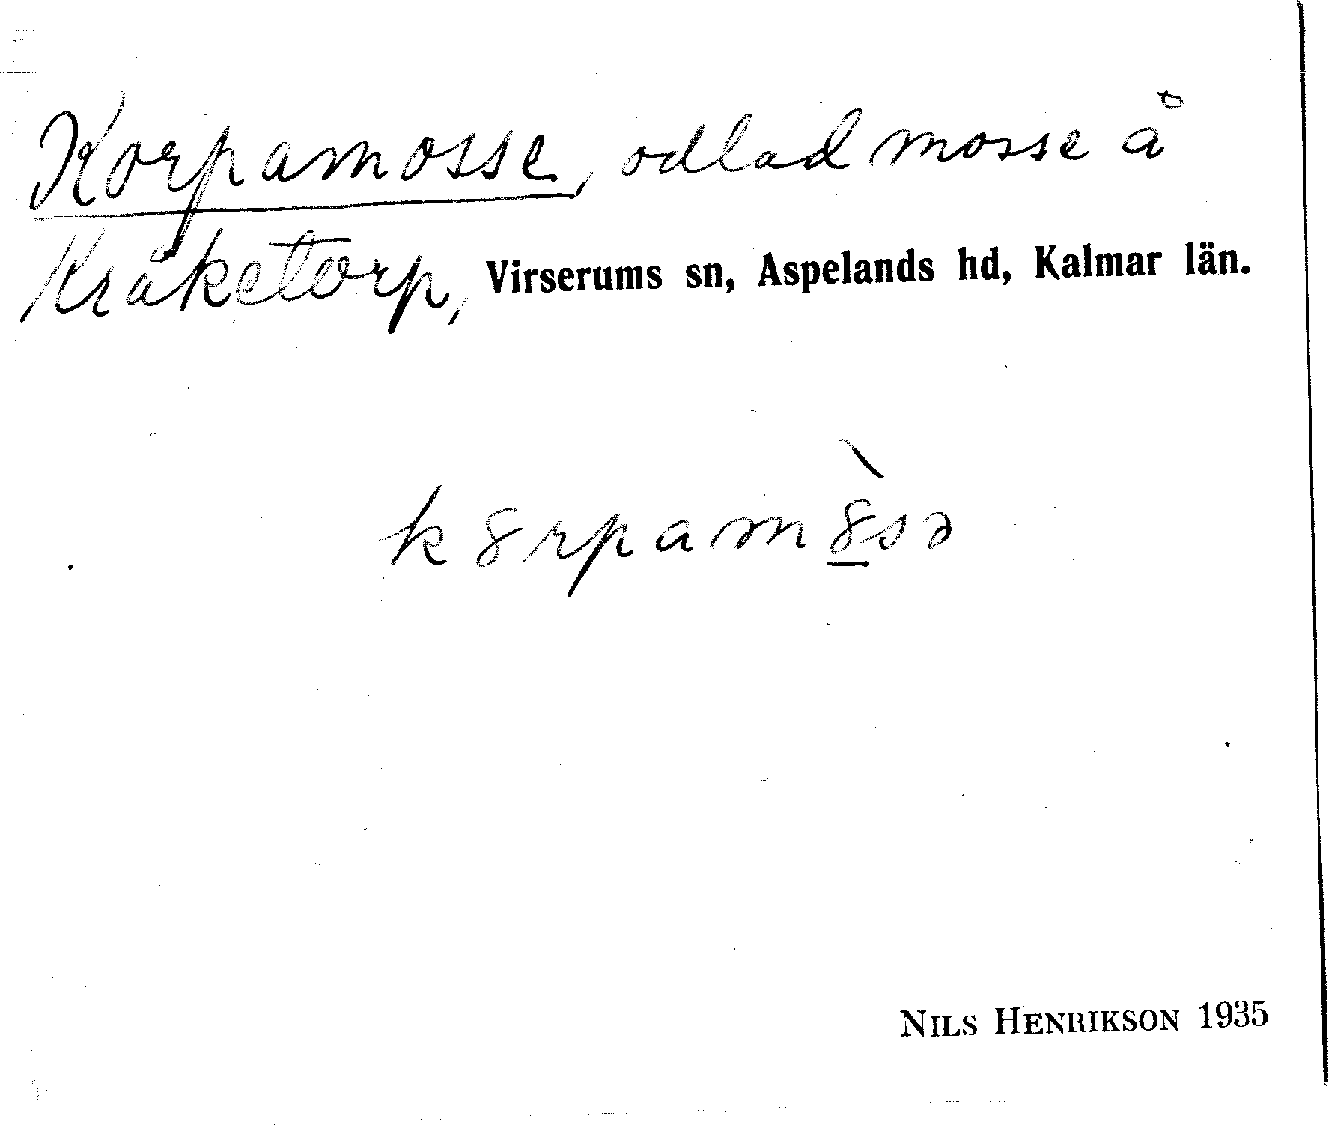 Korpamosse, odlad mosse å
Kråketorp, Virserums sn, Aspelands hd, Kalmar län.
k8rpam8̱̀sə
NILS HENRIKSON 1935